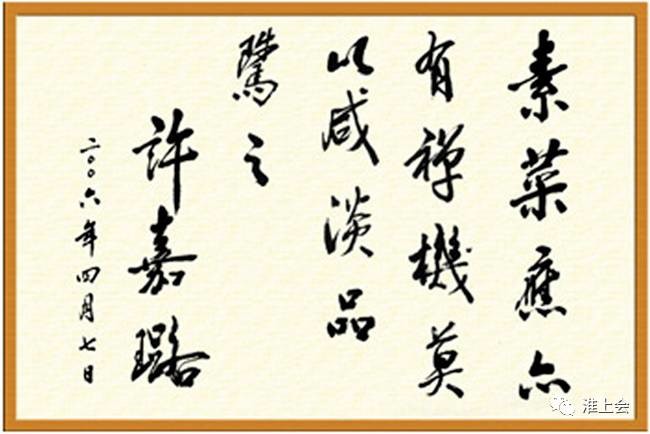 素菜應亦
有禪機莫
以咸淡品
騭之
許嘉璐
二〇〇六年四月七日
淮上会